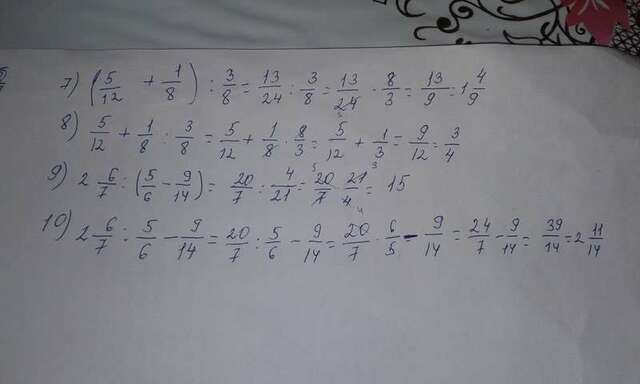 7) (5/12 + 1/8) : 3/8 = 13/24 : 3/8 = 13/24 · 8/3 = 13/9 = 1 4/9
8) 5/12 + 1/8 : 3/8 = 5/12 + 1/8 · 8/3 = 5/12 + 1/3 = 9/12 = 3/4
9) 2 6/7 : (5/6 - 9/14) = 20/7 : 4/21 = 20/7 · 21/4 = 15
10) 2 6/7 : 5/6 - 9/14 = 20/7 : 5/6 - 9/14 = 20/7 · 6/5 - 9/14 = 24/7 - 9/14 = 39/14 = 2 11/14